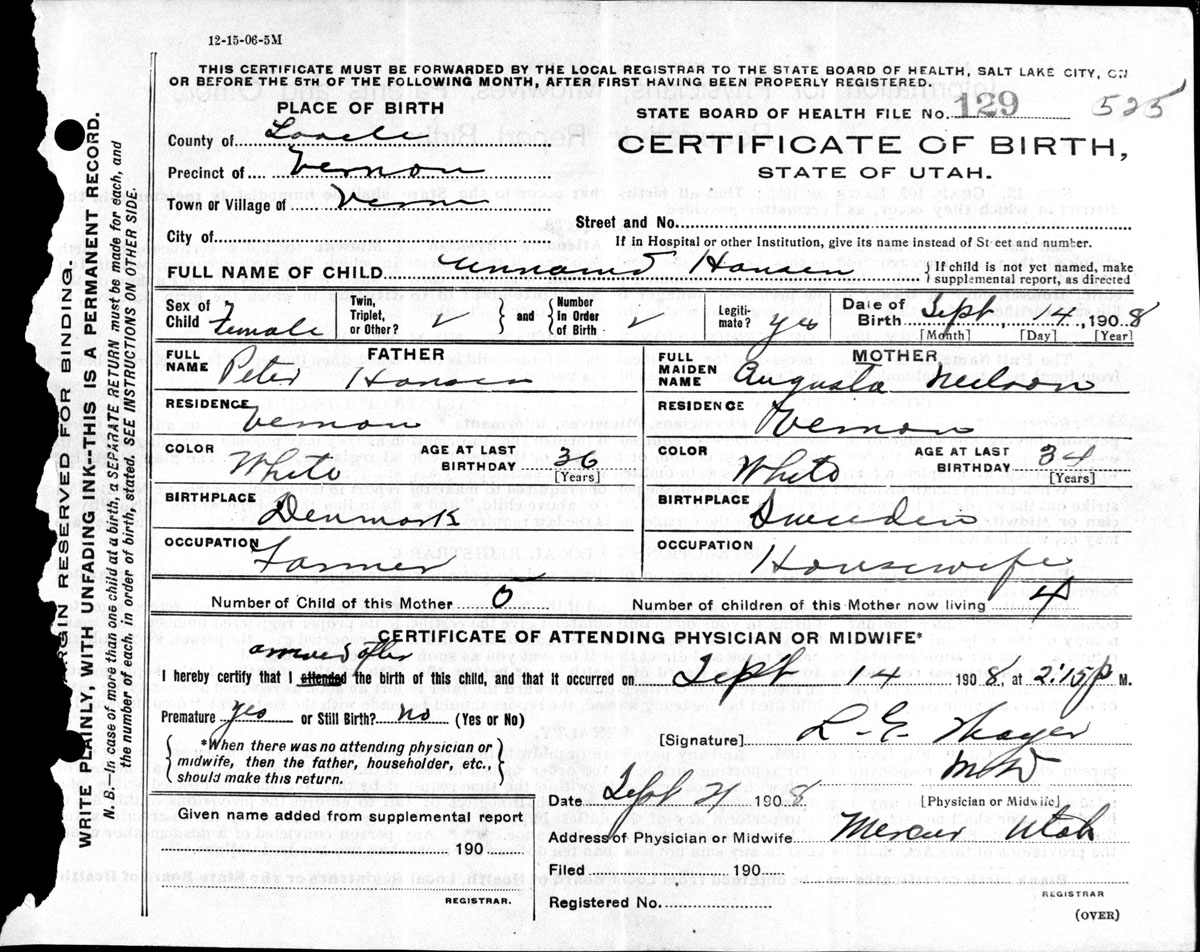 12-15-06-5M
THIS CERTIFICATE MUST BE FORWARDED BY THE LOCAL REGISTRAR TO THE STATE BOARD OF HEALTH, SALT LAKE CITY, ON
OR BEFORE THE 5TH OF THE FOLLOWING MONTH, AFTER FIRST HAVING BEEN PROPERLY REGISTERED.
PLACE OF BIRTH
STATE BOARD OF HEALTH FILE No. 129 525
County of Tooele
CERTIFICATE OF BIRTH,
STATE OF UTAH.
Precinct of Vernon
Town or Village of Vernon
Street and No.
City of
If in Hospital or other Institution, give its name instead of Street and number.
FULL NAME OF CHILD Unnamed Hansen } If child is not yet named, make supplemental report, as directed
Sex of Child Female Twin, Triplet, or Other? } and { Number In Order of Birth Legiti- mate? yes Date of Birth Sept 14, 1908
[Month] [Day] [Year]
FATHER
FULL NAME Peter Hansen
RESIDENCE Vernon
COLOR White AGE AT LAST BIRTHDAY 36 [Years]
BIRTHPLACE Denmark
OCCUPATION Farmer
MOTHER
FULL MAIDEN NAME Augusta Neilson
RESIDENCE Vernon
COLOR White AGE AT LAST BIRTHDAY 34 [Years]
BIRTHPLACE Sweden
OCCUPATION Housewife
Number of Child of this Mother 5 Number of children of this Mother now living 4
CERTIFICATE OF ATTENDING PHYSICIAN OR MIDWIFE*
arrived after
I hereby certify that I attended the birth of this child, and that it occurred on Sept 14 1908, at 2:15 p M.
Premature yes or Still Birth? no (Yes or No)
{ *When there was no attending physician or
midwife, then the father, householder, etc.,
should make this return. }
[Signature] L. E. Thayer
MD
Date Sept 21 1908 [Physician or Midwife]
Given name added from supplemental report
190
REGISTRAR.
Address of Physician or Midwife Mercur Utah
Filed 190
REGISTRAR
Registered No.
(OVER)
MARGIN RESERVED FOR BINDING.
WRITE PLAINLY, WITH UNFADING INK--THIS IS A PERMANENT RECORD.
N. B.—In case of more than one child at a birth, a SEPARATE RETURN must be made for each, and
the number of each, in order of birth, stated. SEE INSTRUCTIONS ON OTHER SIDE.